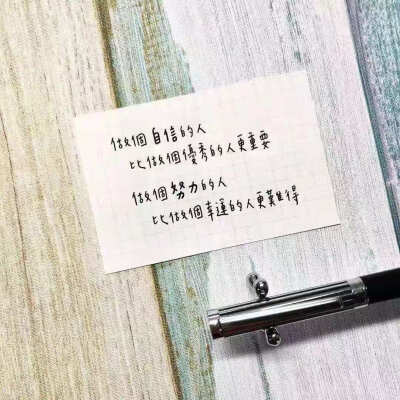 做個自信的人
比做個優秀的人更重要
做個努力的人
比做個幸運的人更難得